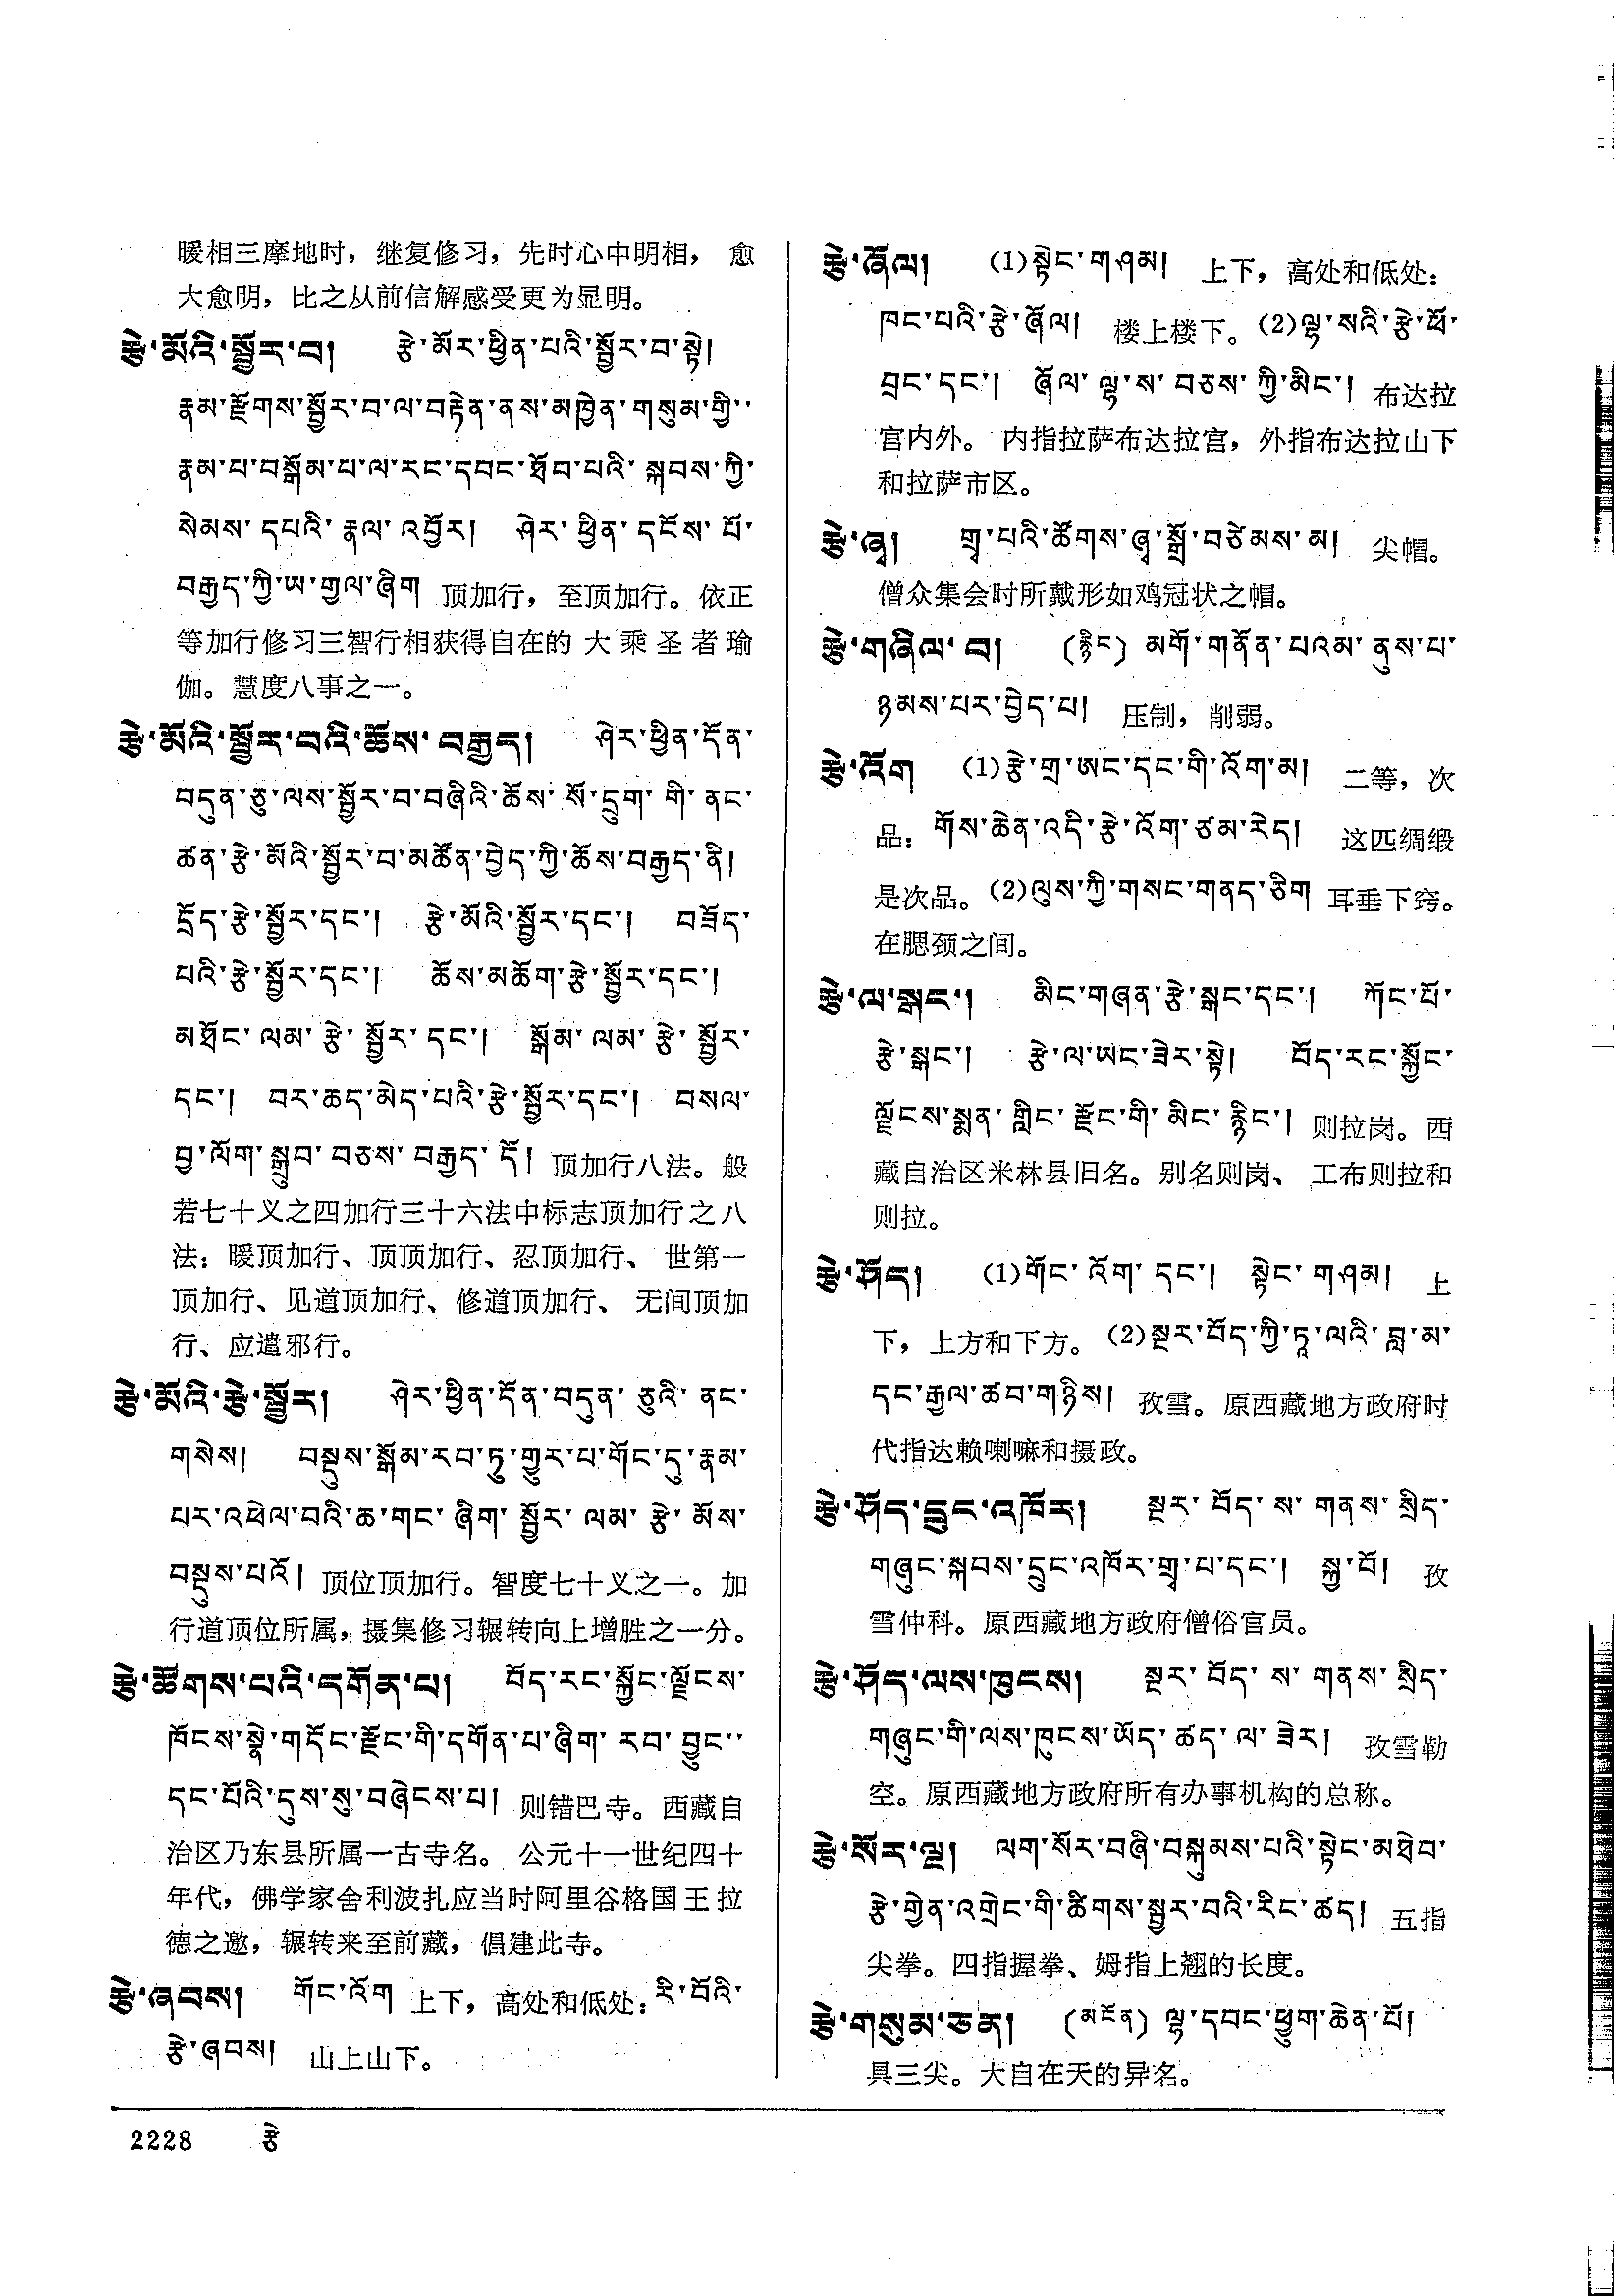 暖相三摩地时，继复修习，先时心中明相，愈
大愈明，比之从前信解感受更为显明。
རྩེ་མོའི་སྦྱོར་བ། རྩེ་མོར་ཕྱིན་པའི་སྦྱོར་བ་སྟེ།
རྣམ་རྫོགས་སྦྱོར་བ་ལ་བརྟེན་ནས་མཁྱེན་གསུམ་གྱི་
རྣམ་པ་བསྒོམ་པ་ལ་རང་དབང་ཐོབ་པའི་སྐབས་ཀྱི་
སེམས་དཔའི་རྣལ་འབྱོར། ཤེར་ཕྱིན་དངོས་པོ་
བརྒྱད་ཀྱི་ཨ་གྱལ་ཞིག 顶加行，至顶加行。依正
等加行修习三智行相获得自在的大乘圣者瑜
伽。慧度八事之一。
རྩེ་མོའི་སྦྱོར་བའི་ཆོས་བརྒྱད། ཤེར་ཕྱིན་དོན་
བདུན་ཅུ་ལས་སྦྱོར་བ་བཞིའི་ཆོས་སོ་དྲུག་གི་ནང་
ཚན་རྩེ་མོའི་སྦྱོར་བ་མཚོན་བྱེད་ཀྱི་ཆོས་བརྒྱད་ནི།
དྲོད་རྩེ་སྦྱོར་དང་། རྩེ་མོའི་སྦྱོར་དང་། བཟོད་
པའི་རྩེ་སྦྱོར་དང་། ཆོས་མཆོག་རྩེ་སྦྱོར་དང་།
མཐོང་ལམ་རྩེ་སྦྱོར་དང་། སྒོམ་ལམ་རྩེ་སྦྱོར་
དང་། བར་ཆད་མེད་པའི་རྩེ་སྦྱོར་དང་། བསལ་
བྱ་ལོག་སྒྲུབ་བཅས་བརྒྱད་དོ། 顶加行八法。般
若七十义之四加行三十六法中标志顶加行之八
法：暖顶加行、顶顶加行、忍顶加行、世第一
顶加行、见道顶加行、修道顶加行、无间顶加
行、应遣邪行。
རྩེ་མོའི་རྩེ་སྦྱོར། ཤེར་ཕྱིན་དོན་བདུན་ཅུའི་ནང་
གསེས། བསྡུས་སྒོམ་རབ་ཏུ་གྱུར་པ་གོང་དུ་རྣམ་
པར་འཕེལ་བའི་ཆ་གང་ཞིག་སྦྱོར་ལམ་རྩེ་མོས་
བསྡུས་པའོ། 顶位顶加行。智度七十义之一。加
行道顶位所属，摄集修习辗转向上增胜之一分。
རྩེ་ཚོགས་པའི་དགོན་པ། བོད་རང་སྐྱོང་ལྗོངས་
ཁོངས་སྣེ་གདོང་རྫོང་གི་དགོན་པ་ཞིག་རབ་བྱུང་
དང་པོའི་དུས་སུ་བཞེངས་པ། 则错巴寺。西藏自
治区乃东县所属一古寺名。公元十一世纪四十
年代，佛学家舍利波扎应当时阿里谷格国王拉
德之邀，辗转来至前藏，倡建此寺。
རྩེ་ཞབས། གོང་འོག 上下，高处和低处：རི་བོའི་
རྩེ་ཞབས། 山上山下。
རྩེ་ཞོལ། (1)སྟེང་གཤམ། 上下，高处和低处：
ཁང་པའི་རྩེ་ཞོལ། 楼上楼下。(2)ལྷ་སའི་རྩེ་ཕོ་
བྲང་དང་། ཞོལ་ལྷ་ས་བཅས་ཀྱི་མིང་། 布达拉
宫内外。内指拉萨布达拉宫，外指布达拉山下
和拉萨市区。
རྩེ་ཞྭ། གྲྭ་པའི་ཚོགས་ཞྭ་སྒྲོ་བཙེམས་མ། 尖帽。
僧众集会时所戴形如鸡冠状之帽。
རྩེ་གཞིལ་བ། (རྙིང) མགོ་གནོན་པའམ་ནུས་པ་
ཉམས་པར་བྱེད་པ། 压制，削弱。
རྩེ་འོག (1)རྩེ་གྲ་ཨང་དང་གི་འོག་མ། 二等，次
品：གོས་ཆེན་འདི་རྩེ་འོག་ཙམ་རེད། 这匹绸缎
是次品。(2)ལུས་ཀྱི་གསང་གནད་ཅིག 耳垂下窍。
在腮颈之间。
རྩེ་ལ་སྒང་། མིང་གཞན་རྩེ་སྒང་དང་། ཀོང་པོ་
རྩེ་སྒང་། རྩེ་ལ་ཨང་ཟེར་སྟེ། བོད་རང་སྐྱོང་
ལྗོངས་སྨན་གླིང་རྫོང་གི་མིང་རྙིང་། 则拉岗。西
藏自治区米林县旧名。别名则岗、工布则拉和
则拉。
རྩེ་ཤོད། (1)གོང་འོག་དང་། སྟེང་གཤམ། 上
下，上方和下方。(2)སྔར་བོད་ཀྱི་ཏཱ་ལའི་བླ་མ་
དང་རྒྱལ་ཚབ་གཉིས། 孜雪。原西藏地方政府时
代指达赖喇嘛和摄政。
རྩེ་ཤོད་དྲུང་འཁོར། སྔར་བོད་ས་གནས་སྲིད་
གཞུང་སྐབས་དྲུང་འཁོར་གྲྭ་པ་དང་། སྐྱ་བོ། 孜
雪仲科。原西藏地方政府僧俗官员。
རྩེ་ཤོད་ལས་ཁུངས། སྔར་བོད་ས་གནས་སྲིད་
གཞུང་གི་ལས་ཁུངས་ཡོད་ཚད་ལ་ཟེར། 孜雪勒
空。原西藏地方政府所有办事机构的总称。
རྩེ་སོར་ལྔ། ལག་སོར་བཞི་བསྐུམས་པའི་སྟེང་མཐེབ་
རྩེ་གྱེན་འགྲེང་གི་ཚིགས་སྦྱར་བའི་རིང་ཚད། 五指
尖拳。四指握拳、姆指上翘的长度。
རྩེ་གསུམ་ཅན། (མངོན) ལྷ་དབང་ཕྱུག་ཆེན་པོ།
具三尖。大自在天的异名。
2228 རྩེ